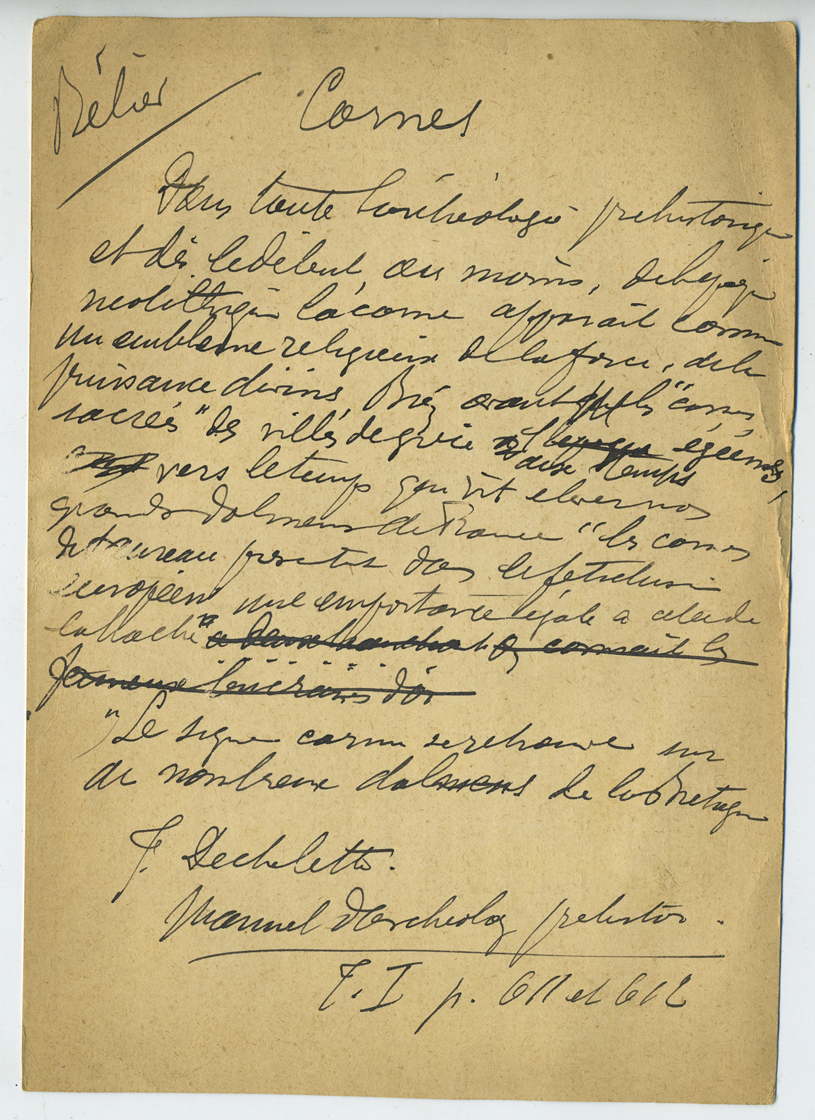 Bélier
Cornes
Dans toute l'archéologie préhistorique
et dès le début, au moins, de l'époque
néolithique la corne apparait comme
un emblème religieux de la force, de la
puissance divine. Bien avant les "cornes
sacrées" des villes de grèce égéennes,
aux temps
vers le temps qui vit elever nos
grands dolmens de France "les cornes
de taureau dans le fetichisme
européen une importance égale a celle de
la hache" a deux tranchants on connait les
fameux bucranes d'or
"Le signe cornu se retrouve sur
de nombreux dolmens de la Bretagne
J. Dechelette.
Manuel d'Archeolog prehistor.
T. I p. 611 et 612